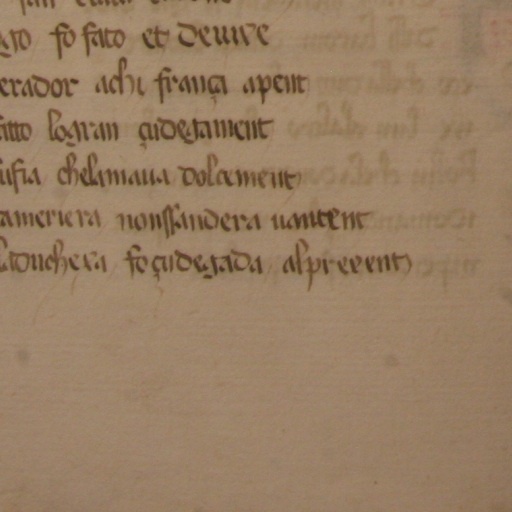 fo fato et deuire
erador achi frança apent
atto logran çudegament
ufia chelamaua dolcement
cameriera nonssandera uantent
laduchera fo çudegada alpreent